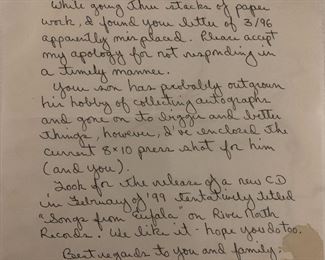 While going thru stacks of paper
work, I found your letter of 3/96
apparently misplaced. Please accept
my apology for not responding in
a timely manner.
Your son has probably outgrown
his hobby of collecting autographs
and gone on to bigger and better
things, however, I've enclosed the
current 8x10 press shot for him
(and you).
Look for the release of a new CD
in February of '99 tentatively titled
"Songs from Eufala" on River North
Records. We like it - hope you do too.
Best regards to you and family.